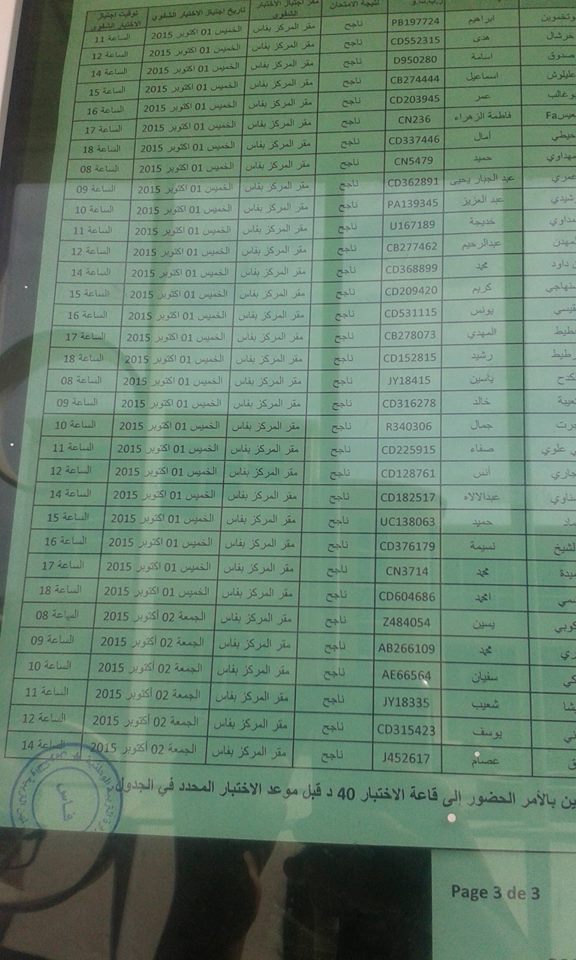 ر.ب.ت.و نتيجة الامتحان مقر اجتياز الاختبار الشفوي تاريخ اجتياز الاختبار الشفوي توقيت اجتياز الاختبار الشفوي
ابراهيم PB197724 ناجح مقر المركز بفاس الخميس 01 اكتوبر 2015 الساعة 11
خرشال هدى CD552315 ناجح مقر المركز بفاس الخميس 01 اكتوبر 2015 الساعة 12
صدوق اسامة D950280 ناجح مقر المركز بفاس الخميس 01 اكتوبر 2015 الساعة 14
عليلوش اسماعيل CB274444 ناجح مقر المركز بفاس الخميس 01 اكتوبر 2015 الساعة 15
بوغالب عمر CD203945 ناجح مقر المركز بفاس الخميس 01 اكتوبر 2015 الساعة 16
فاطمة الزهراء CN236 ناجح مقر المركز بفاس الخميس 01 اكتوبر 2015 الساعة 17
أمال CD337446 ناجح مقر المركز بفاس الخميس 01 اكتوبر 2015 الساعة 18
حميد CN5479 ناجح مقر المركز بفاس الخميس 01 اكتوبر 2015 الساعة 08
عبد الجبار يحيى CD362891 ناجح مقر المركز بفاس الخميس 01 اكتوبر 2015 الساعة 09
عبد العزيز PA139345 ناجح مقر المركز بفاس الخميس 01 اكتوبر 2015 الساعة 10
خديجة U167189 ناجح مقر المركز بفاس الخميس 01 اكتوبر 2015 الساعة 11
عبدالرحيم CB277462 ناجح مقر المركز بفاس الخميس 01 اكتوبر 2015 الساعة 12
محمد CD368899 ناجح مقر المركز بفاس الخميس 01 اكتوبر 2015 الساعة 14
كريم CD209420 ناجح مقر المركز بفاس الخميس 01 اكتوبر 2015 الساعة 15
يونس CD531115 ناجح مقر المركز بفاس الخميس 01 اكتوبر 2015 الساعة 16
المهدي CB278073 ناجح مقر المركز بفاس الخميس 01 اكتوبر 2015 الساعة 17
رشيد CD152815 ناجح مقر المركز بفاس الخميس 01 اكتوبر 2015 الساعة 18
ياسين JY18415 ناجح مقر المركز بفاس الخميس 01 اكتوبر 2015 الساعة 08
خالد CD316278 ناجح مقر المركز بفاس الخميس 01 اكتوبر 2015 الساعة 09
جمال R340306 ناجح مقر المركز بفاس الخميس 01 اكتوبر 2015 الساعة 10
علوي صفاء CD225915 ناجح مقر المركز بفاس الخميس 01 اكتوبر 2015 الساعة 11
أنس CD128761 ناجح مقر المركز بفاس الخميس 01 اكتوبر 2015 الساعة 12
عبدالالاه CD182517 ناجح مقر المركز بفاس الخميس 01 اكتوبر 2015 الساعة 14
حميد UC138063 ناجح مقر المركز بفاس الخميس 01 اكتوبر 2015 الساعة 15
الشيخ نسيمة CD376179 ناجح مقر المركز بفاس الخميس 01 اكتوبر 2015 الساعة 16
محمد CN3714 ناجح مقر المركز بفاس الخميس 01 اكتوبر 2015 الساعة 17
امحمد CD604686 ناجح مقر المركز بفاس الخميس 01 اكتوبر 2015 الساعة 18
يسين Z484054 ناجح مقر المركز بفاس الجمعة 02 أكتوبر 2015 الساعة 08
محمد AB266109 ناجح مقر المركز بفاس الجمعة 02 أكتوبر 2015 الساعة 09
سفيان AE66564 ناجح مقر المركز بفاس الجمعة 02 أكتوبر 2015 الساعة 10
شعيب JY18335 ناجح مقر المركز بفاس الجمعة 02 أكتوبر 2015 الساعة 11
يوسف CD315423 ناجح مقر المركز بفاس الجمعة 02 أكتوبر 2015 الساعة 12
عصام J452617 ناجح مقر المركز بفاس الجمعة 02 أكتوبر 2015 الساعة 14
بالأمر الحضور إلى قاعة الاختبار 40 د قبل موعد الاختبار المحدد في الجدول
فاس
Page 3 de 3